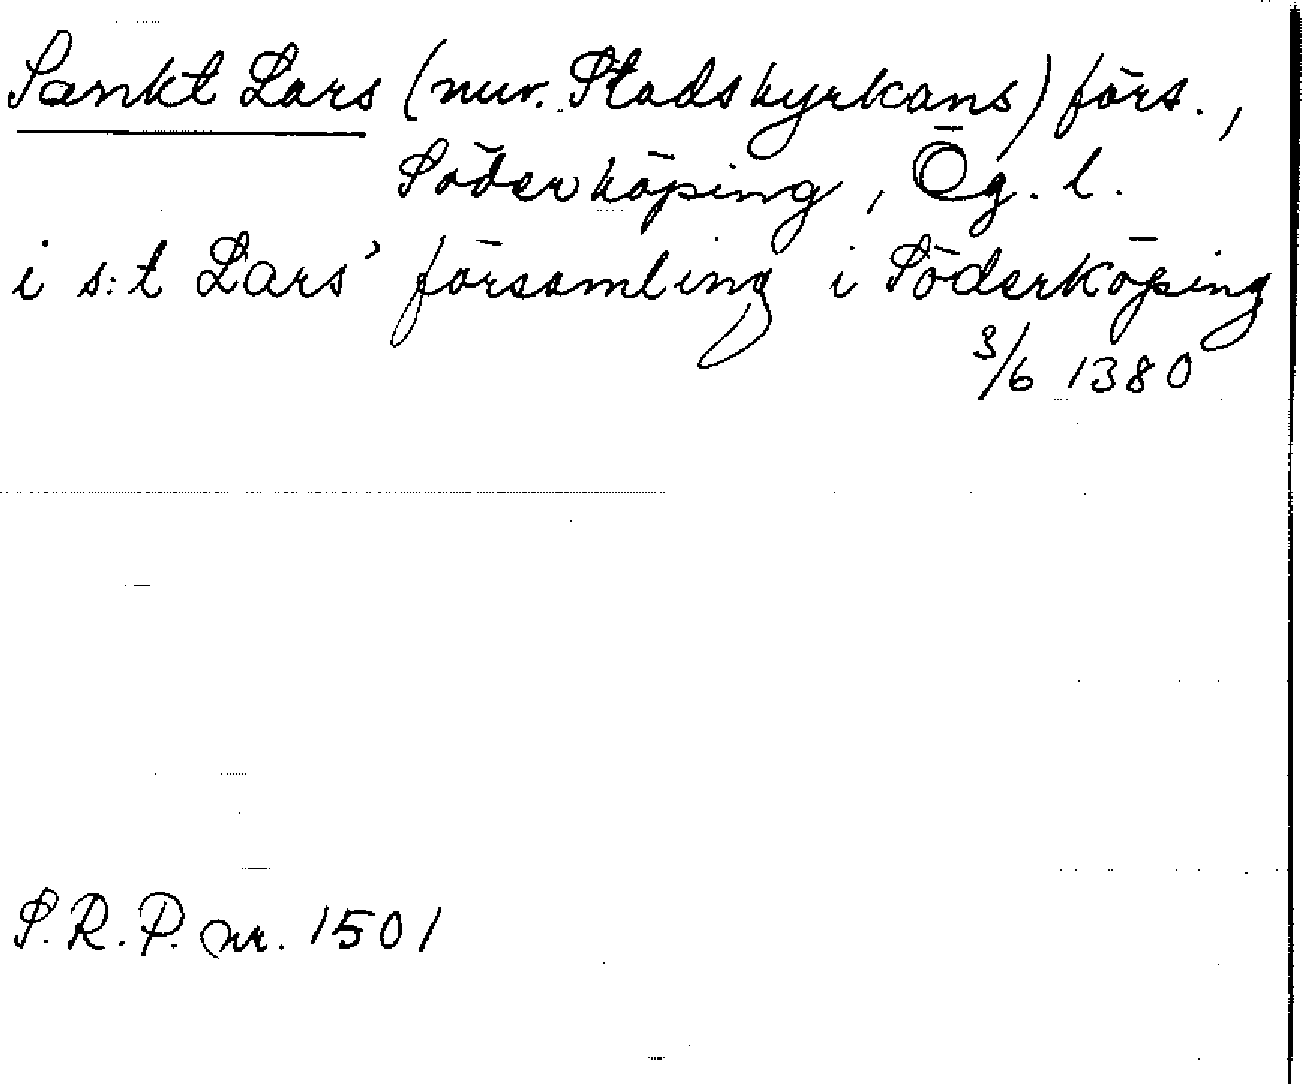 Sankt Lars (nuv. Stadskyrkans) förs.,
Söderköping, Ög. l.
i s:t Lars' församling i Söderköping
3/6 1380
S.R.P. nr. 1501